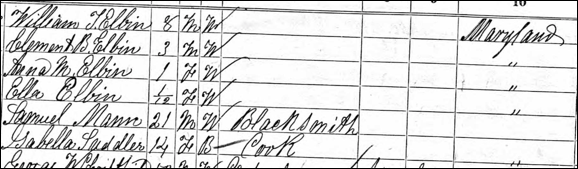 10
William T. Elbin 8 M W Maryland
Clement B. Elbin 3 M W "
Anna M. Elbin 1 F W "
Ella Elbin 1/12 F W "
Samuel Mann 21 M W Blacksmith
Isabella Saddler 14 F B Cook "
George W